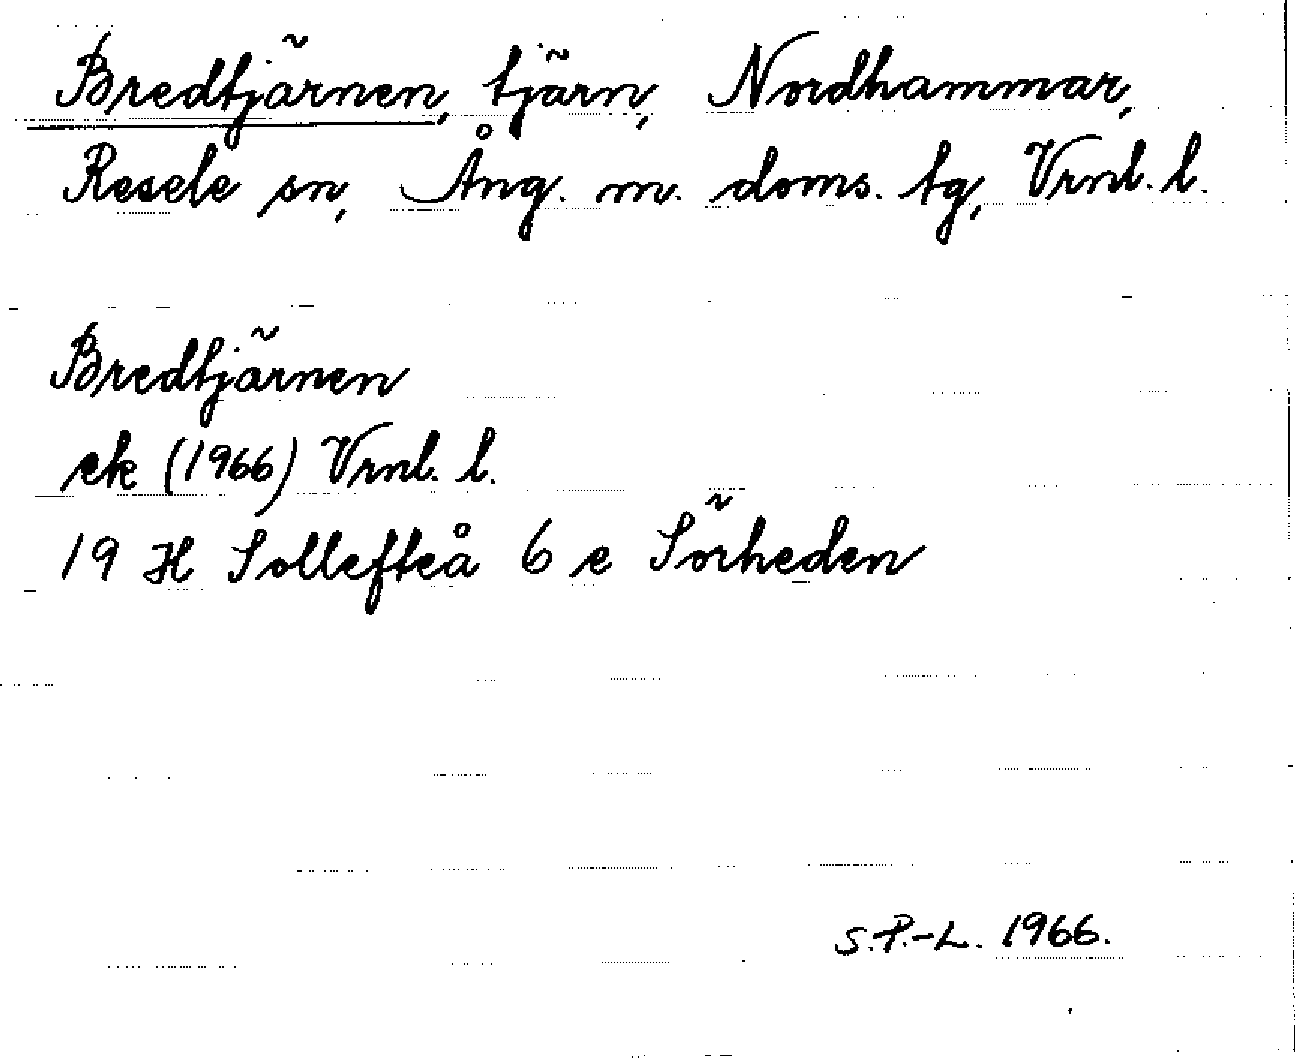 Bredtjärnen, tjärn, Nordhammar,
Resele sn, Ång. m. doms. tg, Vrnl. l.
Bredtjärnen
ek (1966) Vrnl. l.
19 H Sollefteå 6 e Sörheden
S.P.-L. 1966.